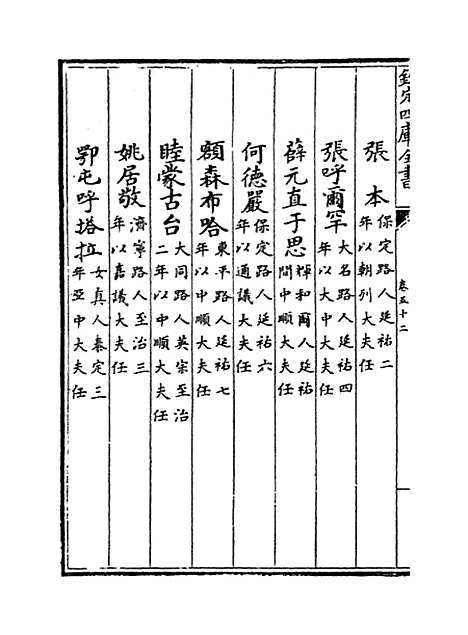 欽定四庫全書
卷五十二
張本保定路人延祐二年以朝列大夫任
張呼爾罕大名路人延祐四年以大中大夫任
薛元直于思輝和爾人延祐間中順大夫任
何德嚴保定路人延祐六年以通議大夫任
額森布哈東平路人延祐七年以中順大夫任
睦蒙古台大同路人英宗至治二年以中順大夫任
姚居敬濟寧路人至治三年以嘉議大夫任
鄂屯呼塔拉女真人泰定三年亞中大夫任